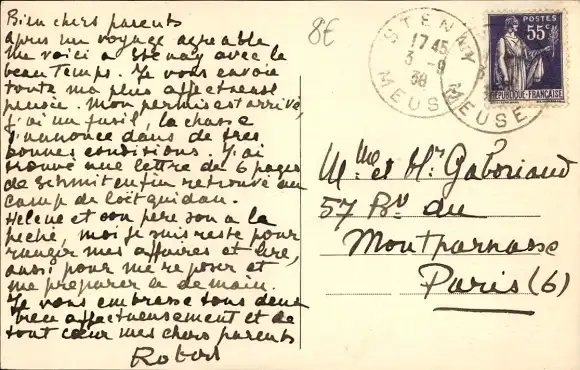 Bien chers parents
Après un voyage agréable
Me voici a Stenay avec le
beau temps. Je vous envoie
toute ma plus affectueuse
pensée. Mon permis est arrivé,
J'ai un fusil, la chasse
s'annonce dans de très
bonnes conditions. J'ai
trouvé une lettre de 6 pages
de Schmit enfin retrouvé au
camp de Coëtquidan.
Helene et son pere son a la
peche, moi je suis resté pour
ranger mes affaires et lire,
aussi pour me reposer et
me préparer a demain.
Je vous embrasse tous deux
bien affectueusement et de
tout cœur mes chers parents
8€
STENAY
17 45
3 - 9
38
MEUSE
MEUSE
POSTES
55c
REPUBLIQUE FRANÇAISE
Mme et Mr Gaboriaud
57 Bd du
Montparnasse
Paris (6)